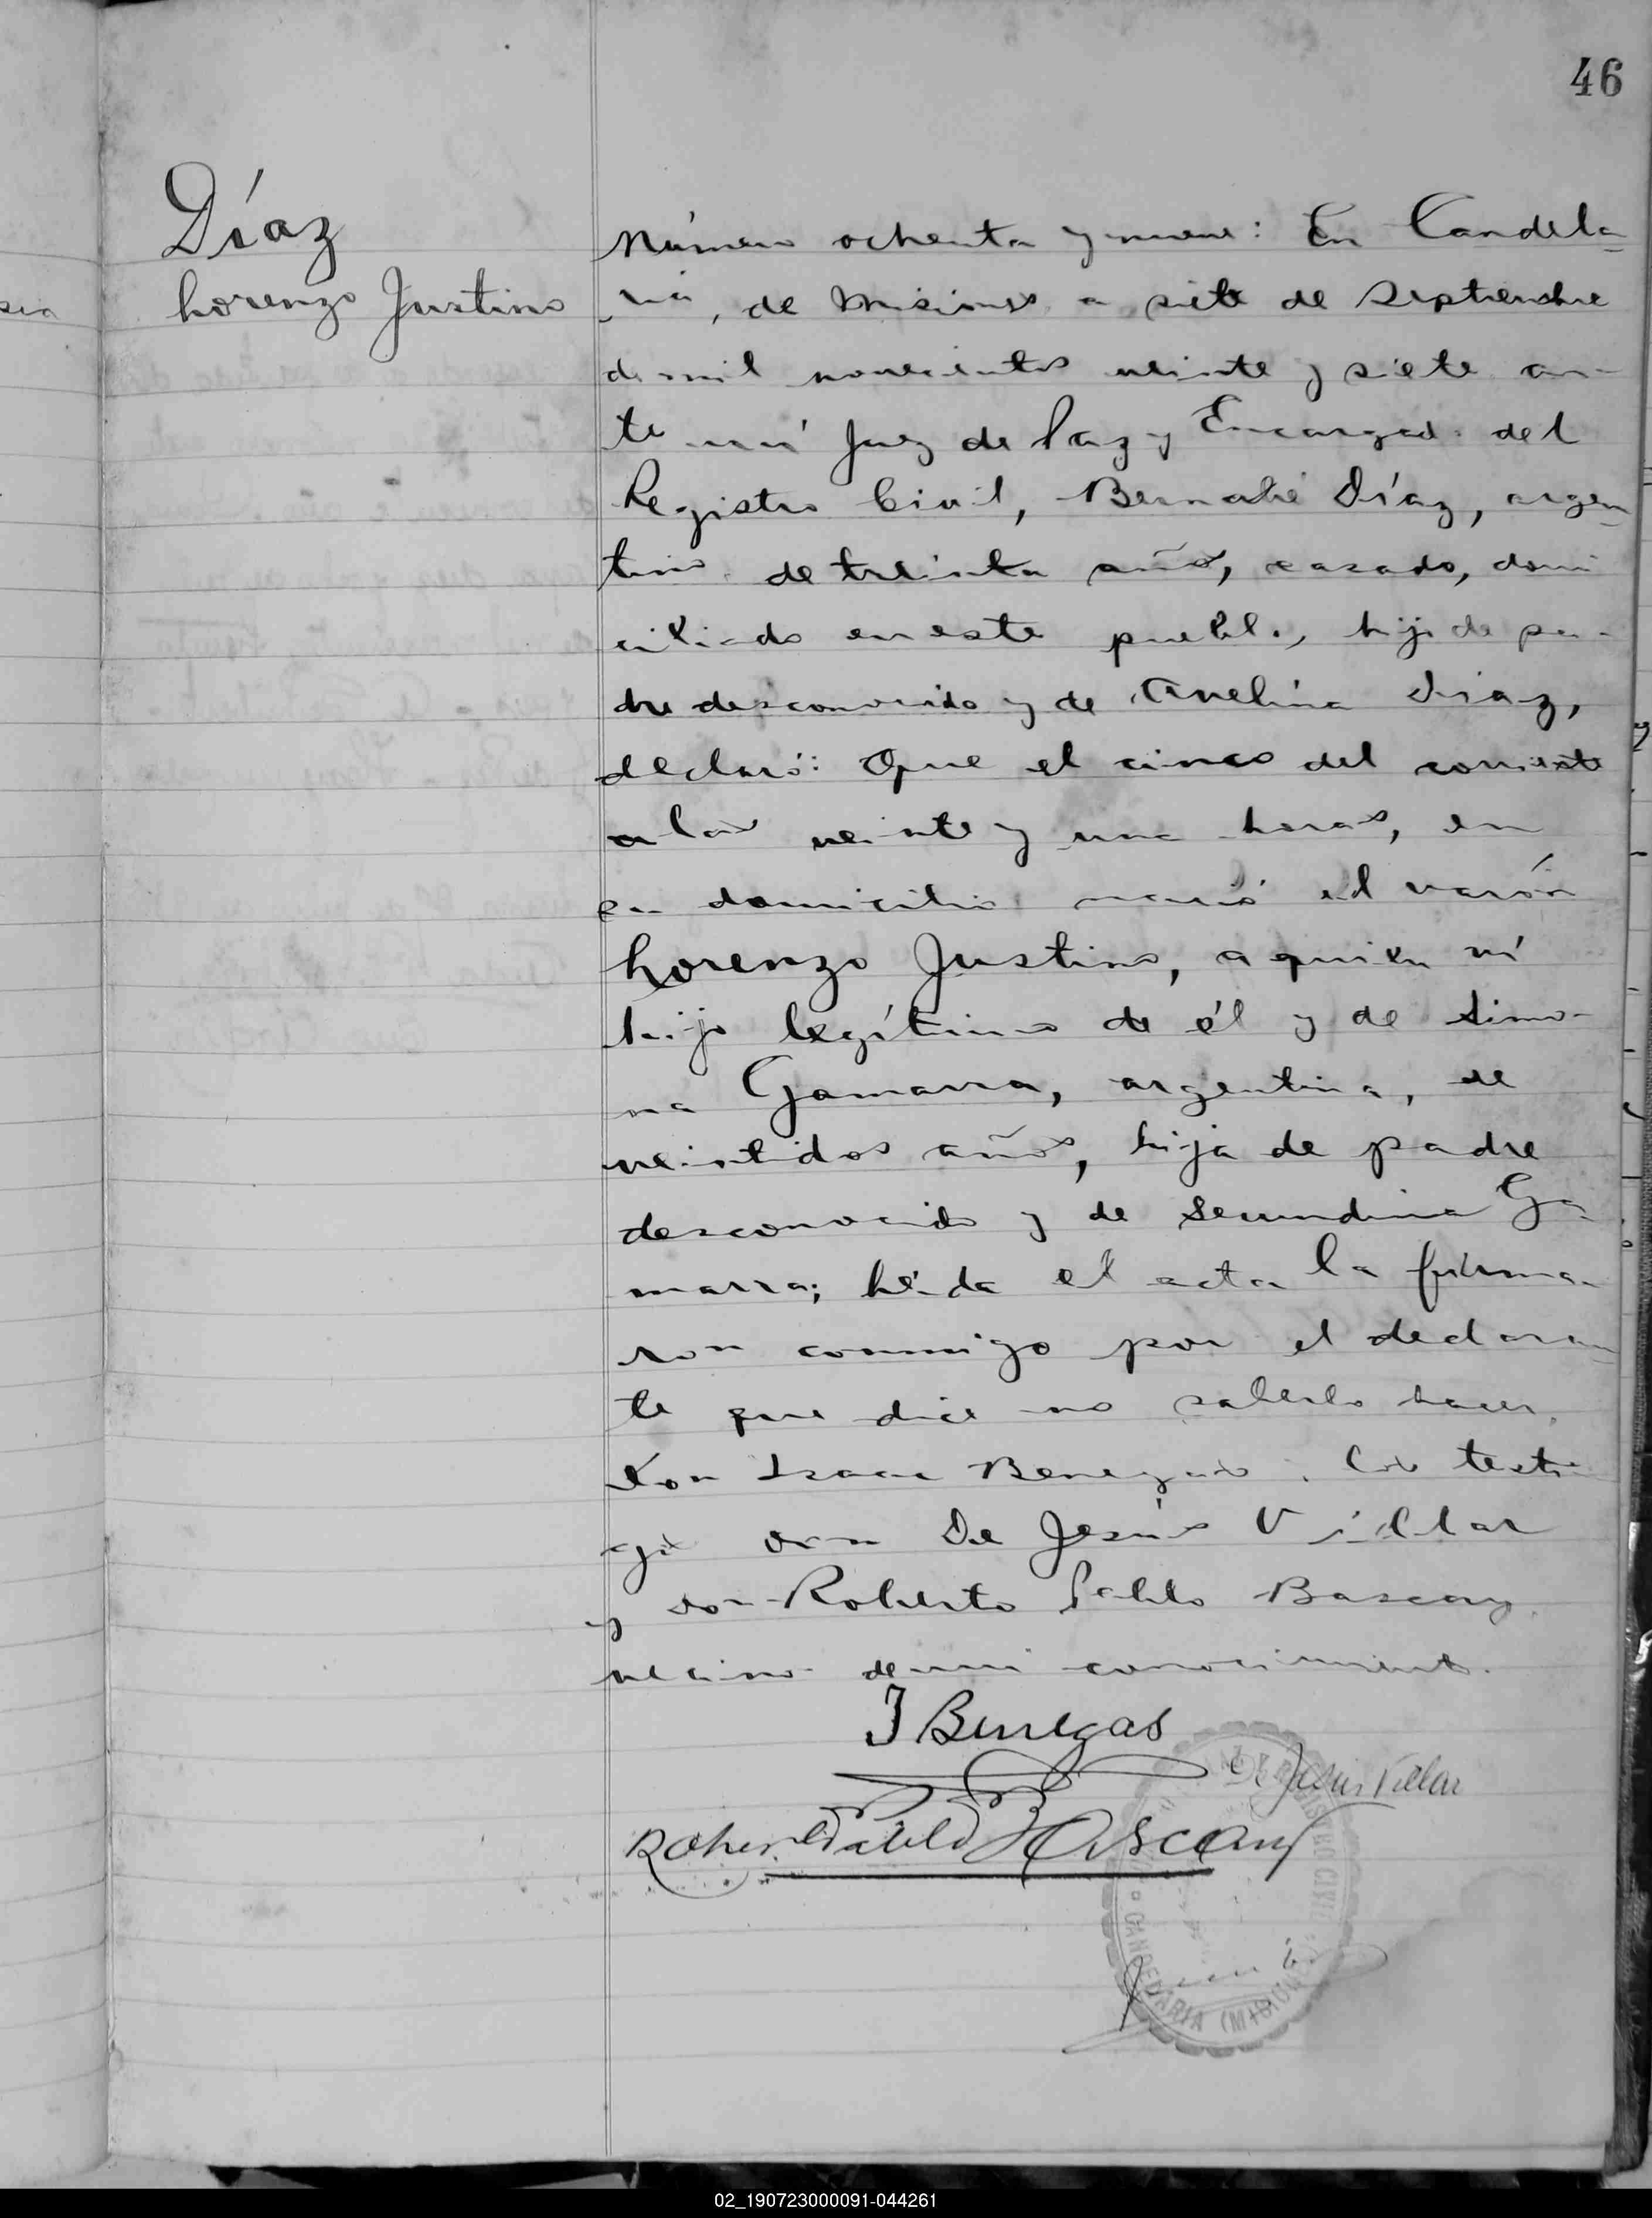 46
Díaz
Lorenzo Justino
Número ochenta y nueve: En Candela-
ria, de Misiones a siete de Septiembre
de mil novecientos veinte y siete an-
te mí Juez de Paz y Encargado del
Registro Civil, Bernabé Díaz, argen-
tino de treinta años, casado, domi
ciliado en este pueblo, hijo de pa-
dre desconocido y de Avelina Díaz,
declaró: Que el cinco del corriente
a las veinte y una horas, en
su domicilio nació el varón
Lorenzo Justino, a quien ví
hijo legítimo de él y de Simo-
na Gamarra, argentina, de
veintidos años, hija de padre
desconocido y de Secundina Ga-
marra; leída el acta la firma-
ron conmigo por el declaran-
te que dice no saberlo hacer,
Don Isaac Benegas. Los testi
gos don De Jesús Villar
y don Roberto Pablo Bascary
vecinos de mi conocimiento.
I Benegas
De Jesus Villar
Roberto Pablo Bascary
REGISTRO CIVIL
CANDELARIA (MISIONES)
02_190723000091-044261